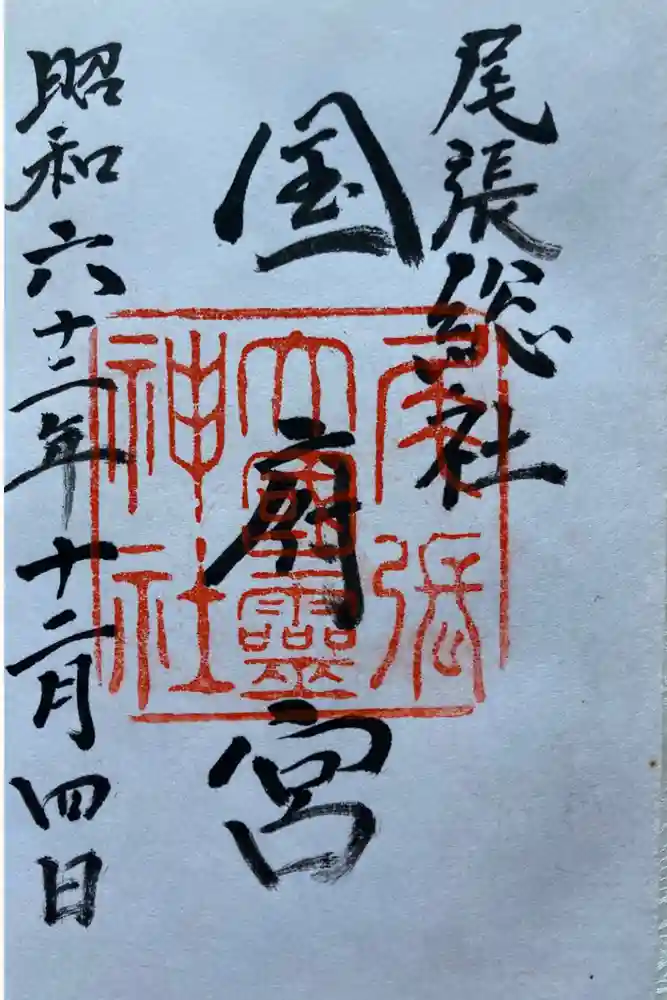 尾張総社
国府宮
昭和六十二年十二月四日
尾張
大國靈
神社